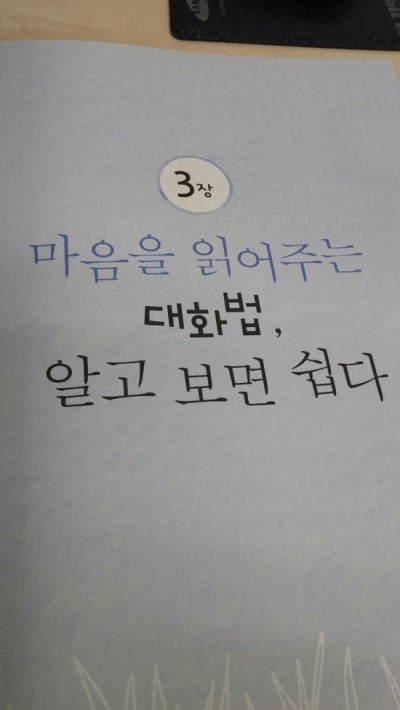 3장
마음을 읽어주는
대화법,
알고 보면 쉽다